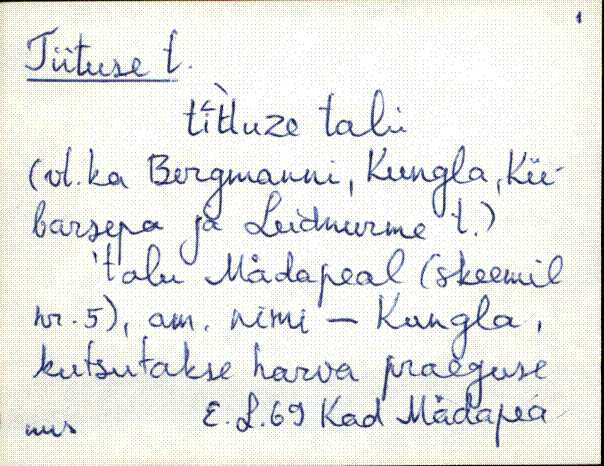 1
Tiituse t.
tìtuze talu
(vt. ka Bergmanni, Kungla, Kii-
barsepa ja Leidnurme t.)
'talu Mädapeal (skeemil
nr. 5), am. nimi – Kungla,
kutsutakse harva praeguse
E. L. 69 Kad Mädapea